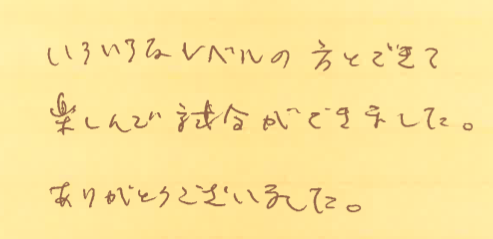 いろいろなレベルの方とできて
楽しんで試合ができました。
ありがとうございました。